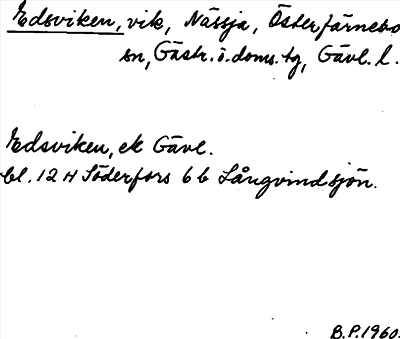 Edsviken, vik, Nässja, Österfärnebo
sn, Gästr. ö. doms. tg, Gävl. l.
Edsviken, ek Gävl.
bl. 12 H Söderfors 6 b Långvindsjön.
B.P. 1960.